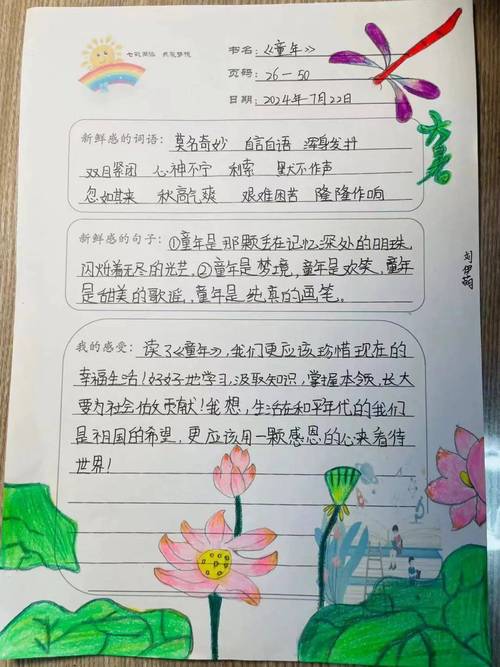 书名：《童年》
页码：26-50
日期：2024年7月22日
大暑
新鲜感的词语：莫名奇妙 自言自语 浑身发抖
双目紧闭 心神不宁 利索 默不作声
忽如其来 秋高气爽 艰难困苦 隆隆作响
新鲜感的句子：①童年是那颗丢在记忆深处的明珠，
闪烁着无尽的光芒。②童年是梦境，童年是欢笑，童年
是甜美的歌谣，童年是纯真的画笔。
刘伊萌
我的感受：读了《童年》，我们更应该珍惜现在的
幸福生活！好好地学习，汲取知识，掌握本领，长大
要为社会做贡献！我想，生活在和平年代的我们
是祖国的希望，更应该用一颗感恩的心来看待
世界！